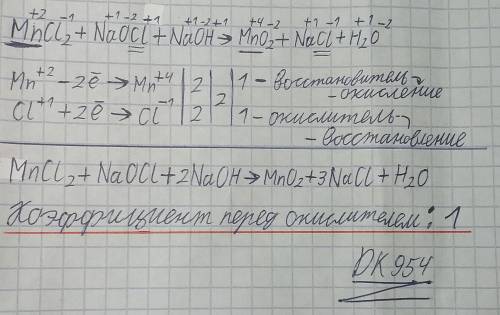 +2 -1 +1 -2 +1 +1 -2 +1 +4 -2 +1 -1 +1 -2
MnCl₂ + NaOCl + NaOH → MnO₂ + NaCl + H₂O
Mn⁺² - 2ē → Mn⁺⁴ | 2 | 2 | 1 - восстановитель
- окисление
Cl⁺¹ + 2ē → Cl⁻¹ | 2 | 1 - окислитель
- восстановление
MnCl₂ + NaOCl + 2NaOH → MnO₂ + 3NaCl + H₂O
Коэффициент перед окислителем: 1
DK954